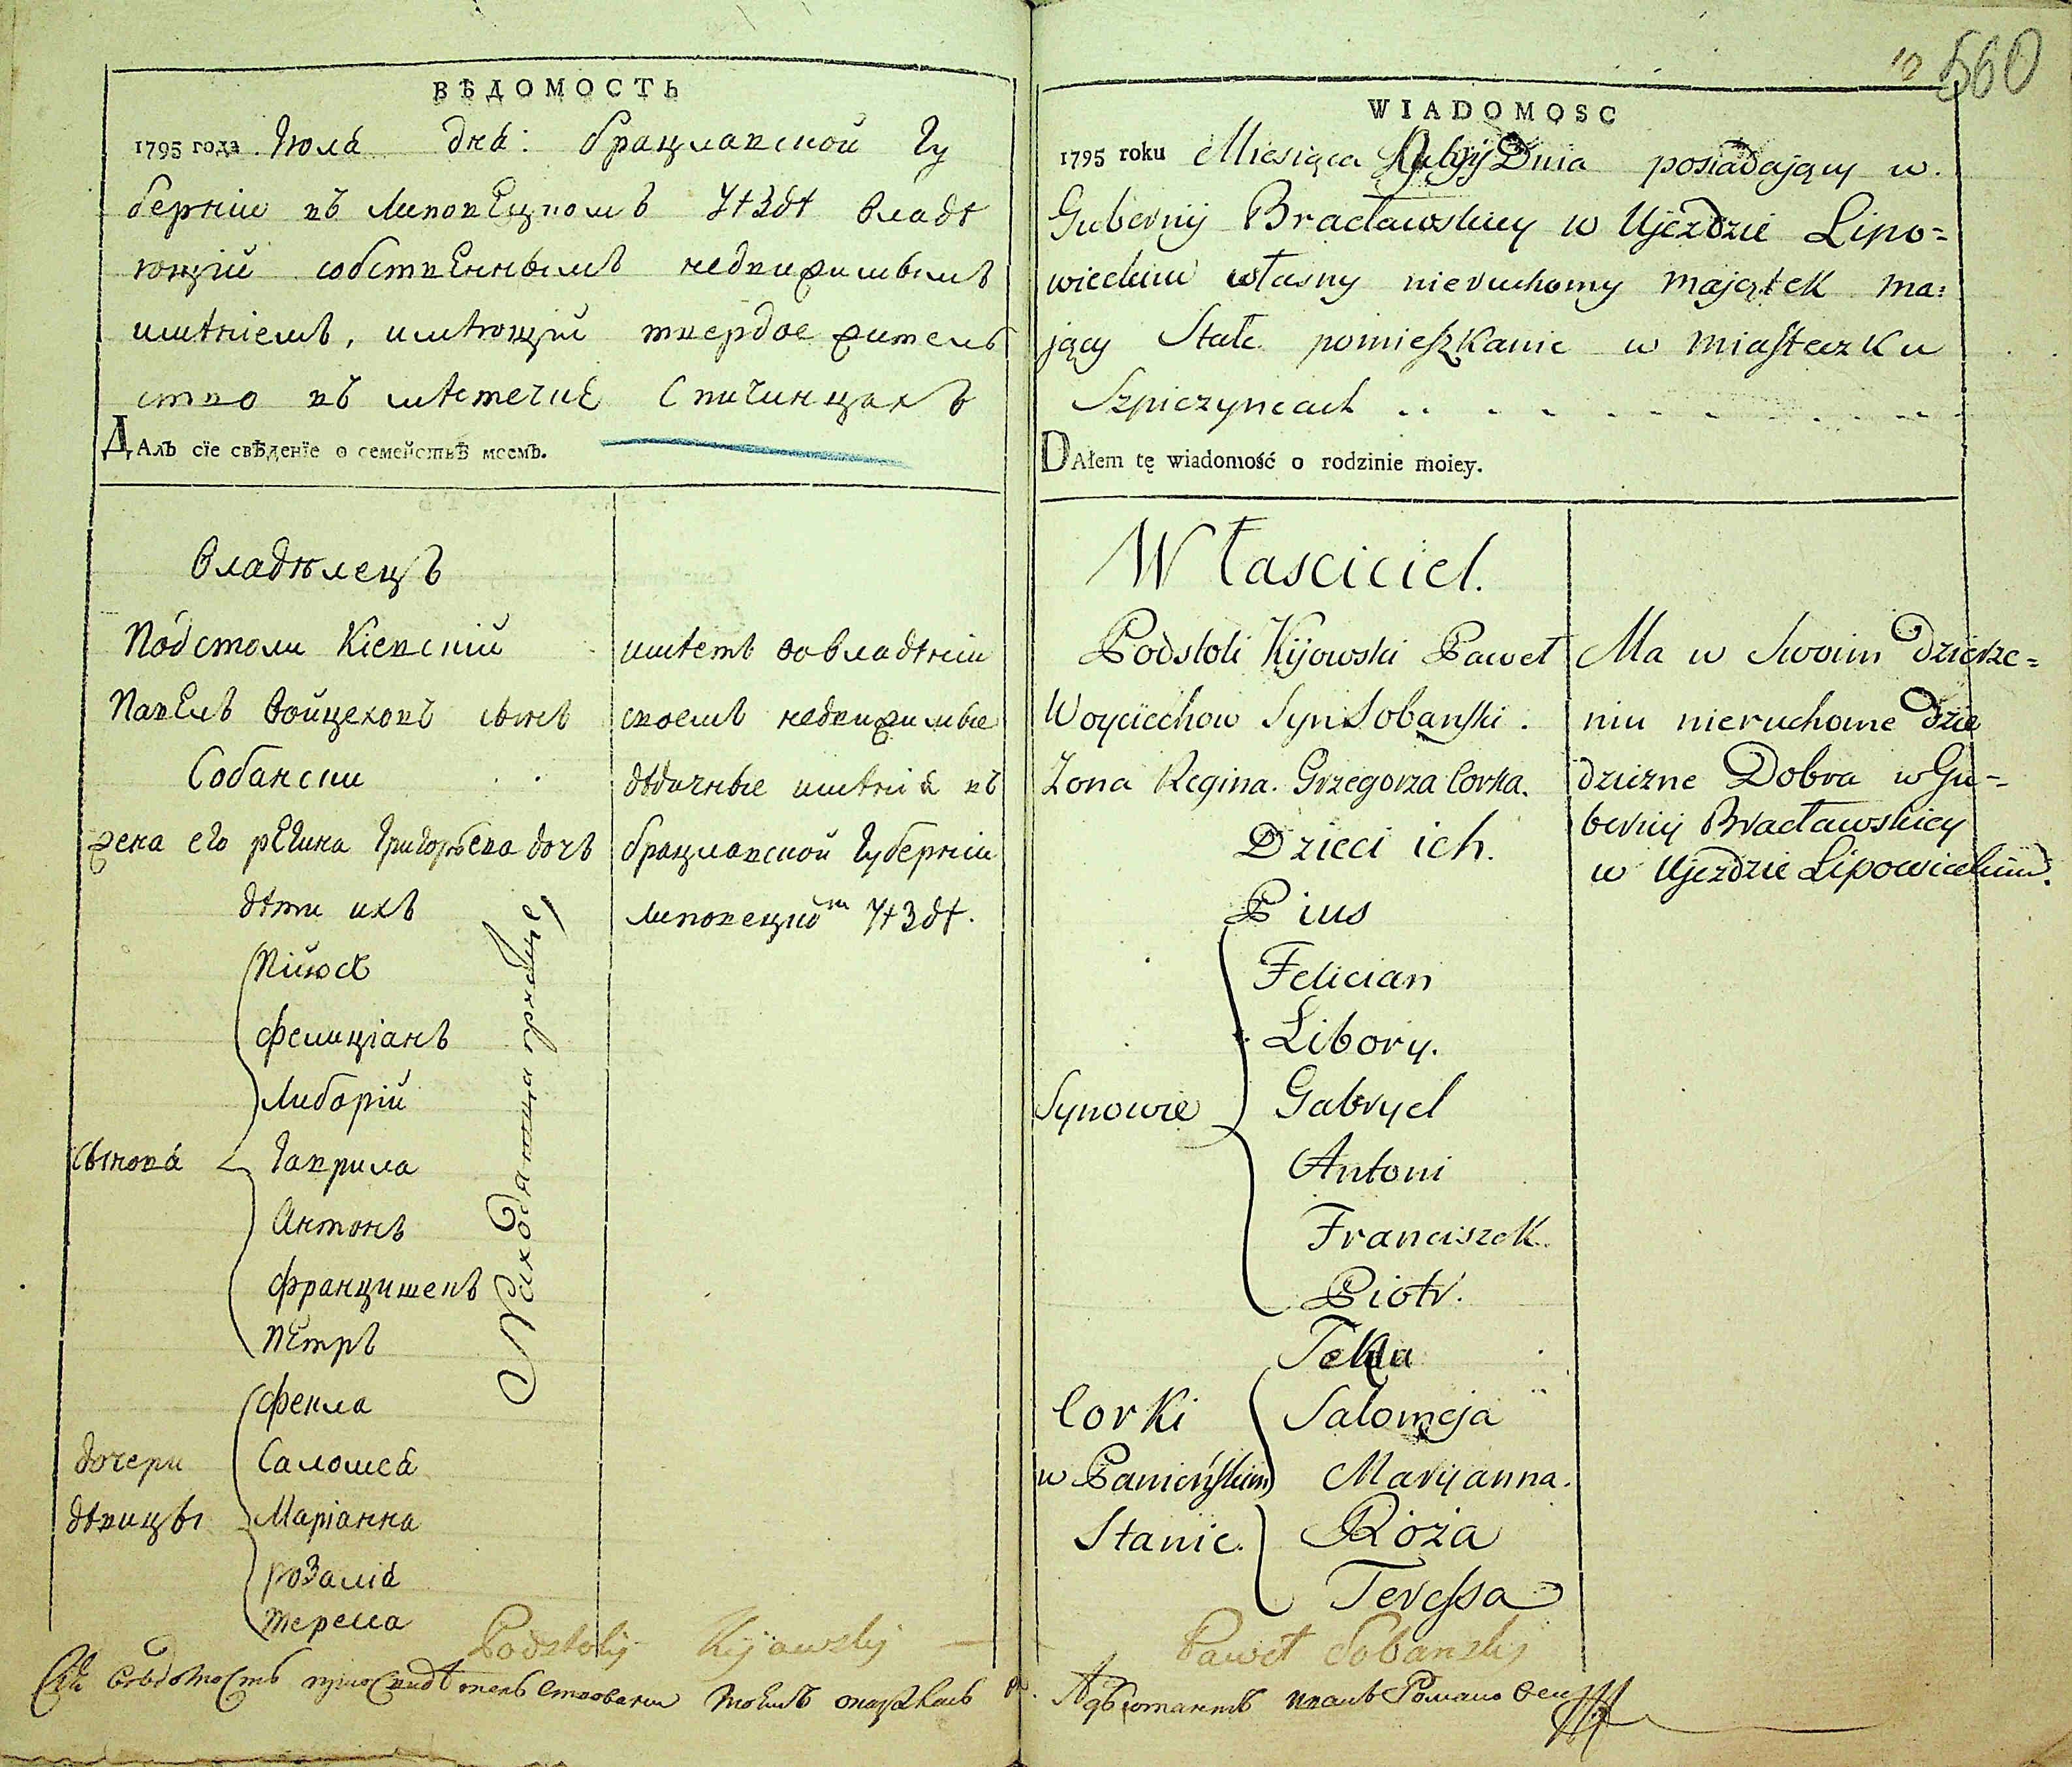 ВѢДОМОСТЬ
1795 года Июля дня: брацлавской Гу
берніи въ Липовецкомъ уѣздѣ владѣ
ющій собственнымъ недвижимымъ
имѣніемъ, имѣющій твердое жител
ство въ мѣстечкѣ Спичинцахъ
ДАлъ сїе свѣденїе о семействѣ моемъ.
владѣлецъ
Подстоли Кіевскій
Павелъ Войцеховъ сынъ
Собански
жена его регина Григорьева дочь
дѣти ихъ
Пиюсъ
Фелиціанъ
Либорій
сынова Гаврила
Антонъ
Францишекъ
Петръ
Фекла
дочери Саломея
дѣвицы Маріанна
розалія
тереса
Находятца при отце
имѣетъ во владѣніи
своемъ недвижимые
дѣдичные имѣнія въ
брацлавской Губерніи
липовецкомъ уѣздѣ.
Podstolij Kijowskij
12 560
WIADOMOSC
1795 roku Miesiąca Dnia posiadający w.
Gubernij Bracławskiey w Ujezdzie Lipo=
wieckim własny nieruchomy majątek ma:
jący Stałe pomieszkanie w miasteczku
Szpiczyncach
DAłem tę wiadomość o rodzinie moiey.
Własciciel.
Podstoli Kijowski Paweł
Woyciechow Syn Sobanski.
Zona Regina. Grzegorza Corka.
Dzieci ich.
Pius
Felician
Libory.
Synowie Gabryel
Antoni
Franciszek.
Piotr.
Tekla
Corki Salomeja
w Panieńskim Maryanna.
Stanie. Róża
Teressa
Ma w Swoim Dzierze=
niu nieruchome Dzie
dziczne Dobra w Gu=
bernij Bracławskiey
w Ujezdzie Lipowieckim.
Paweł Sobanskij